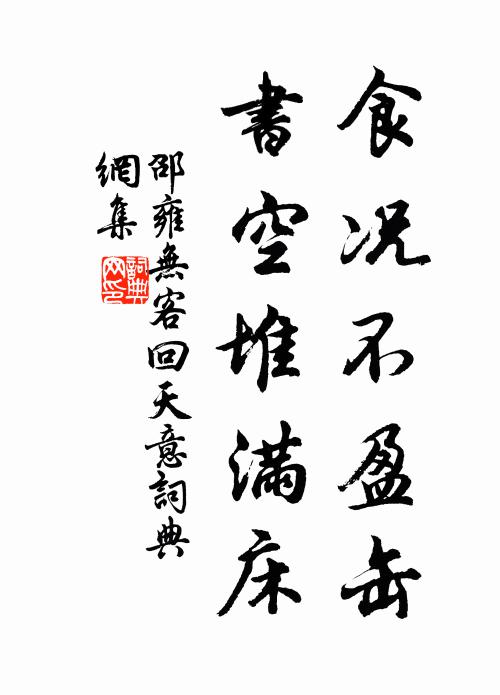 食况不盈缶
書空堆滿床
邵雍無客回天意詞典
網集
詞典
网印